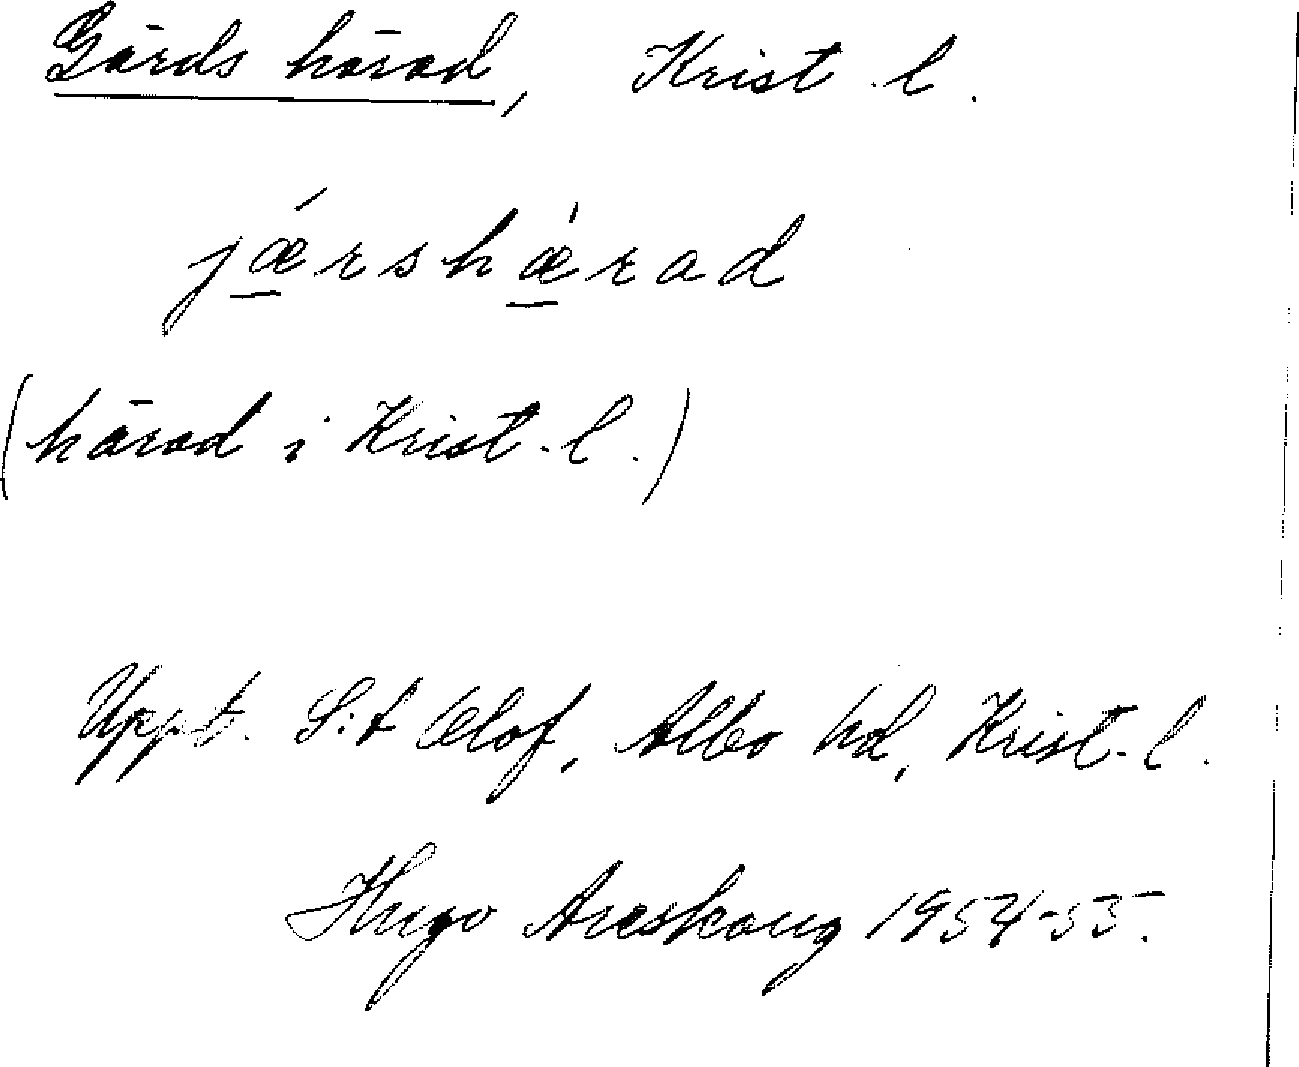 Gärds härad, Krist. l.
jǽrshæ̀rad
(härad i Krist. l.)
Uppt. S:t Olof, Albo hd, Krist. l.
Hugo Areskoug 1954-55.